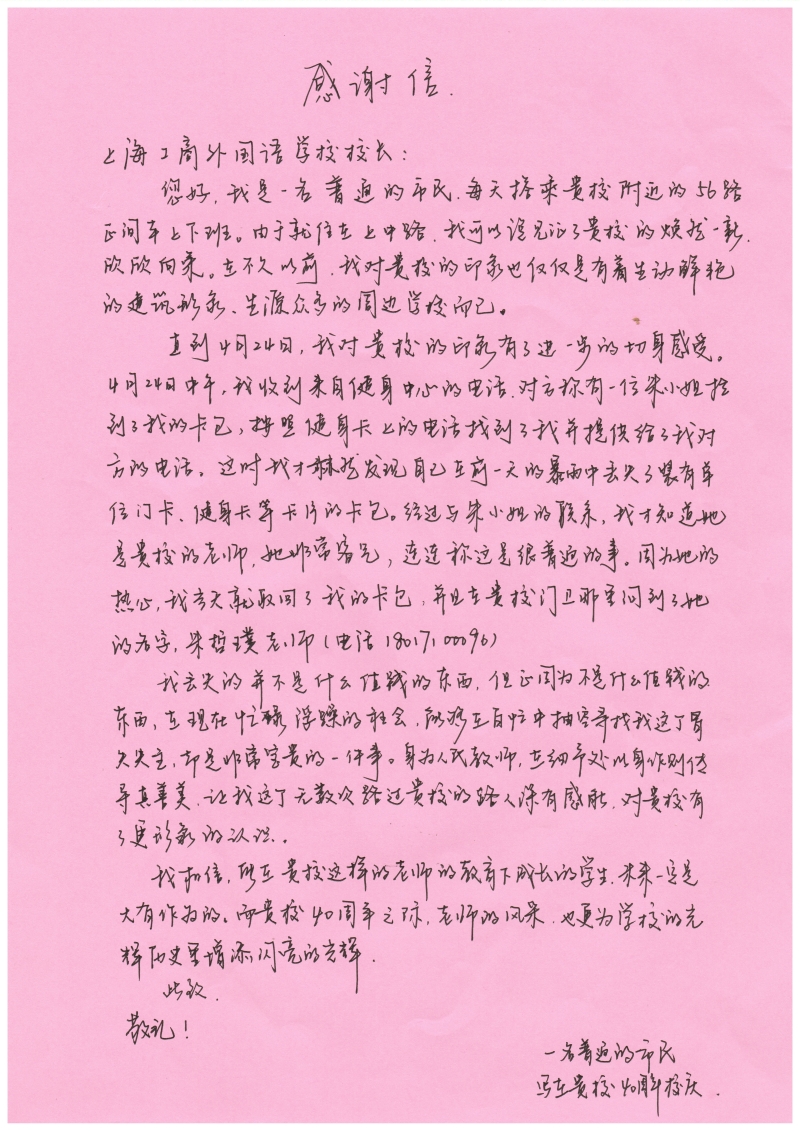 感谢信.
上海工商外国语学校校长:
您好,我是一名普通的市民,每天搭乘贵校附近的56路
区间车上下班。由于就住在上中路,我可以说见证了贵校的焕然一新,
欣欣向荣。在不久以前,我对贵校的印象也仅仅是有着生动鲜艳
的建筑形象、生源众多的周边学校而已。
直到4月24日,我对贵校的印象有了进一步的切身感受。
4月24日中午,我收到来自健身中心的电话,对方称有一位朱小姐捡
到了我的卡包,按照健身卡上的电话找到了我并提供给了我对
方的电话。这时我才赫然发现自己在前一天的暴雨中丢失了装有单
位门卡、健身卡等卡片的卡包。经过与朱小姐的联系,我才知道她
是贵校的老师,她非常客气,连连称这是很普通的事。因为她的
热心,我当天就取回了我的卡包,并且在贵校门卫那里问到了她
的名字,朱哲璞老师(电话18017100096)
我丢失的并不是什么值钱的东西,但正因为不是什么值钱的
东西,在现在忙碌浮躁的社会,能够在百忙中抽空寻找我这个冒
失失主,却是非常宝贵的一件事。身为人民教师,在细节处以身作则传
导真善美,让我这个无数次路过贵校的路人深有感触,对贵校有
了更形象的认识。
我相信,能在贵校这样的老师的教育下成长的学生,未来一定是
大有作为的。而贵校40周年之际,老师的风采,也更为学校的光
辉历史里增添闪亮的光辉.
此致.
敬礼!
一名普通的市民
写在贵校40周年校庆.